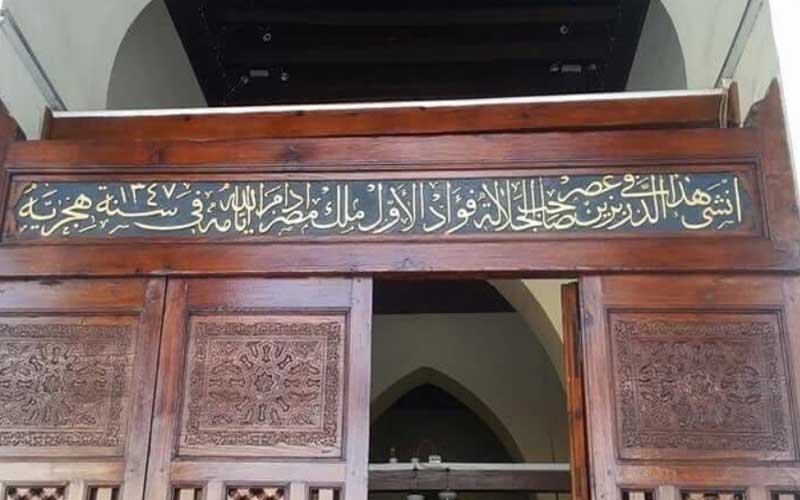 انشئ هذا الدرابزين في عصر صاحب الجلالة فؤاد الأول ملك مصر ادام الله ايامه في سنة ١٣٤٧ هجرية